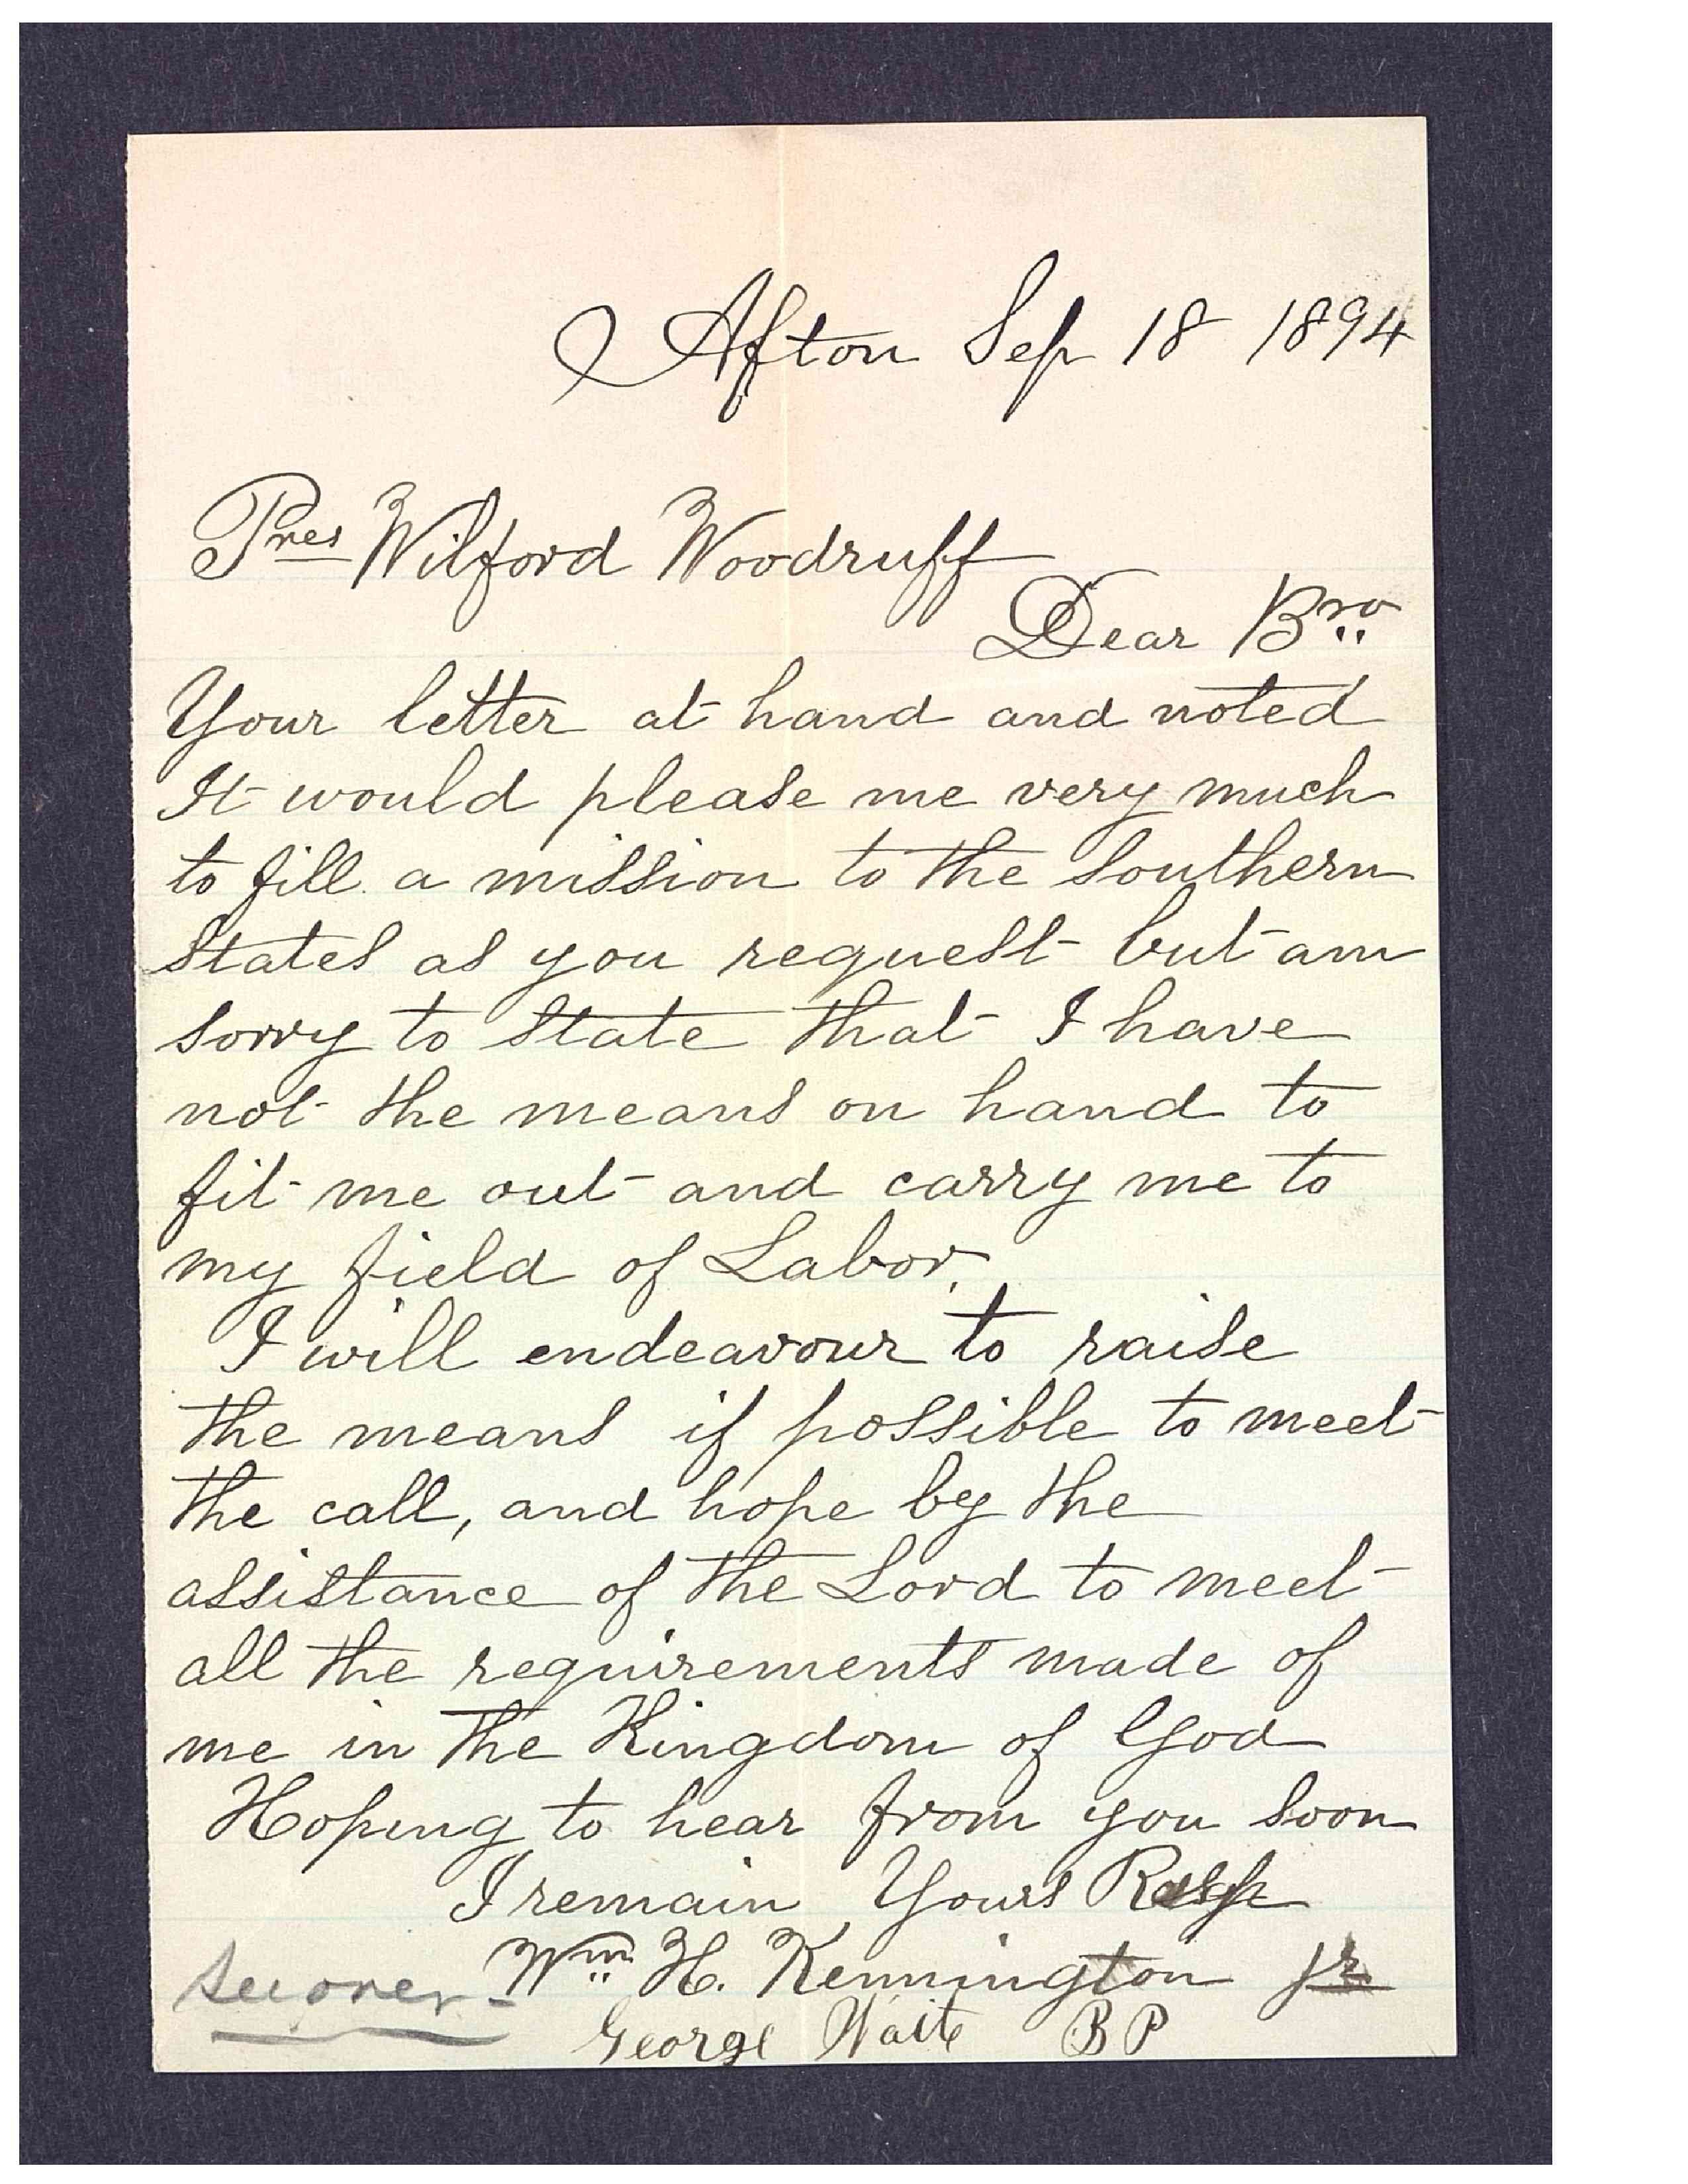 Afton Sep 18 1894
Pres Wilford Woodruff
Dear Bro
Your letter at hand and noted
It would please me very much
to fill a mission to the Southern
States as you request but am
sorry to state that I have
not the means on hand to
fit me out and carry me to
my field of Labor.
I will endeavour to raise
the means if possible to meet
the call, and hope by the
assistance of the Lord to meet
all the requirements made of
me in the Kingdom of God
Hoping to hear from you soon
I remain Yours Resp
Wm H. Kennington Jr
See over -
George Waite BP